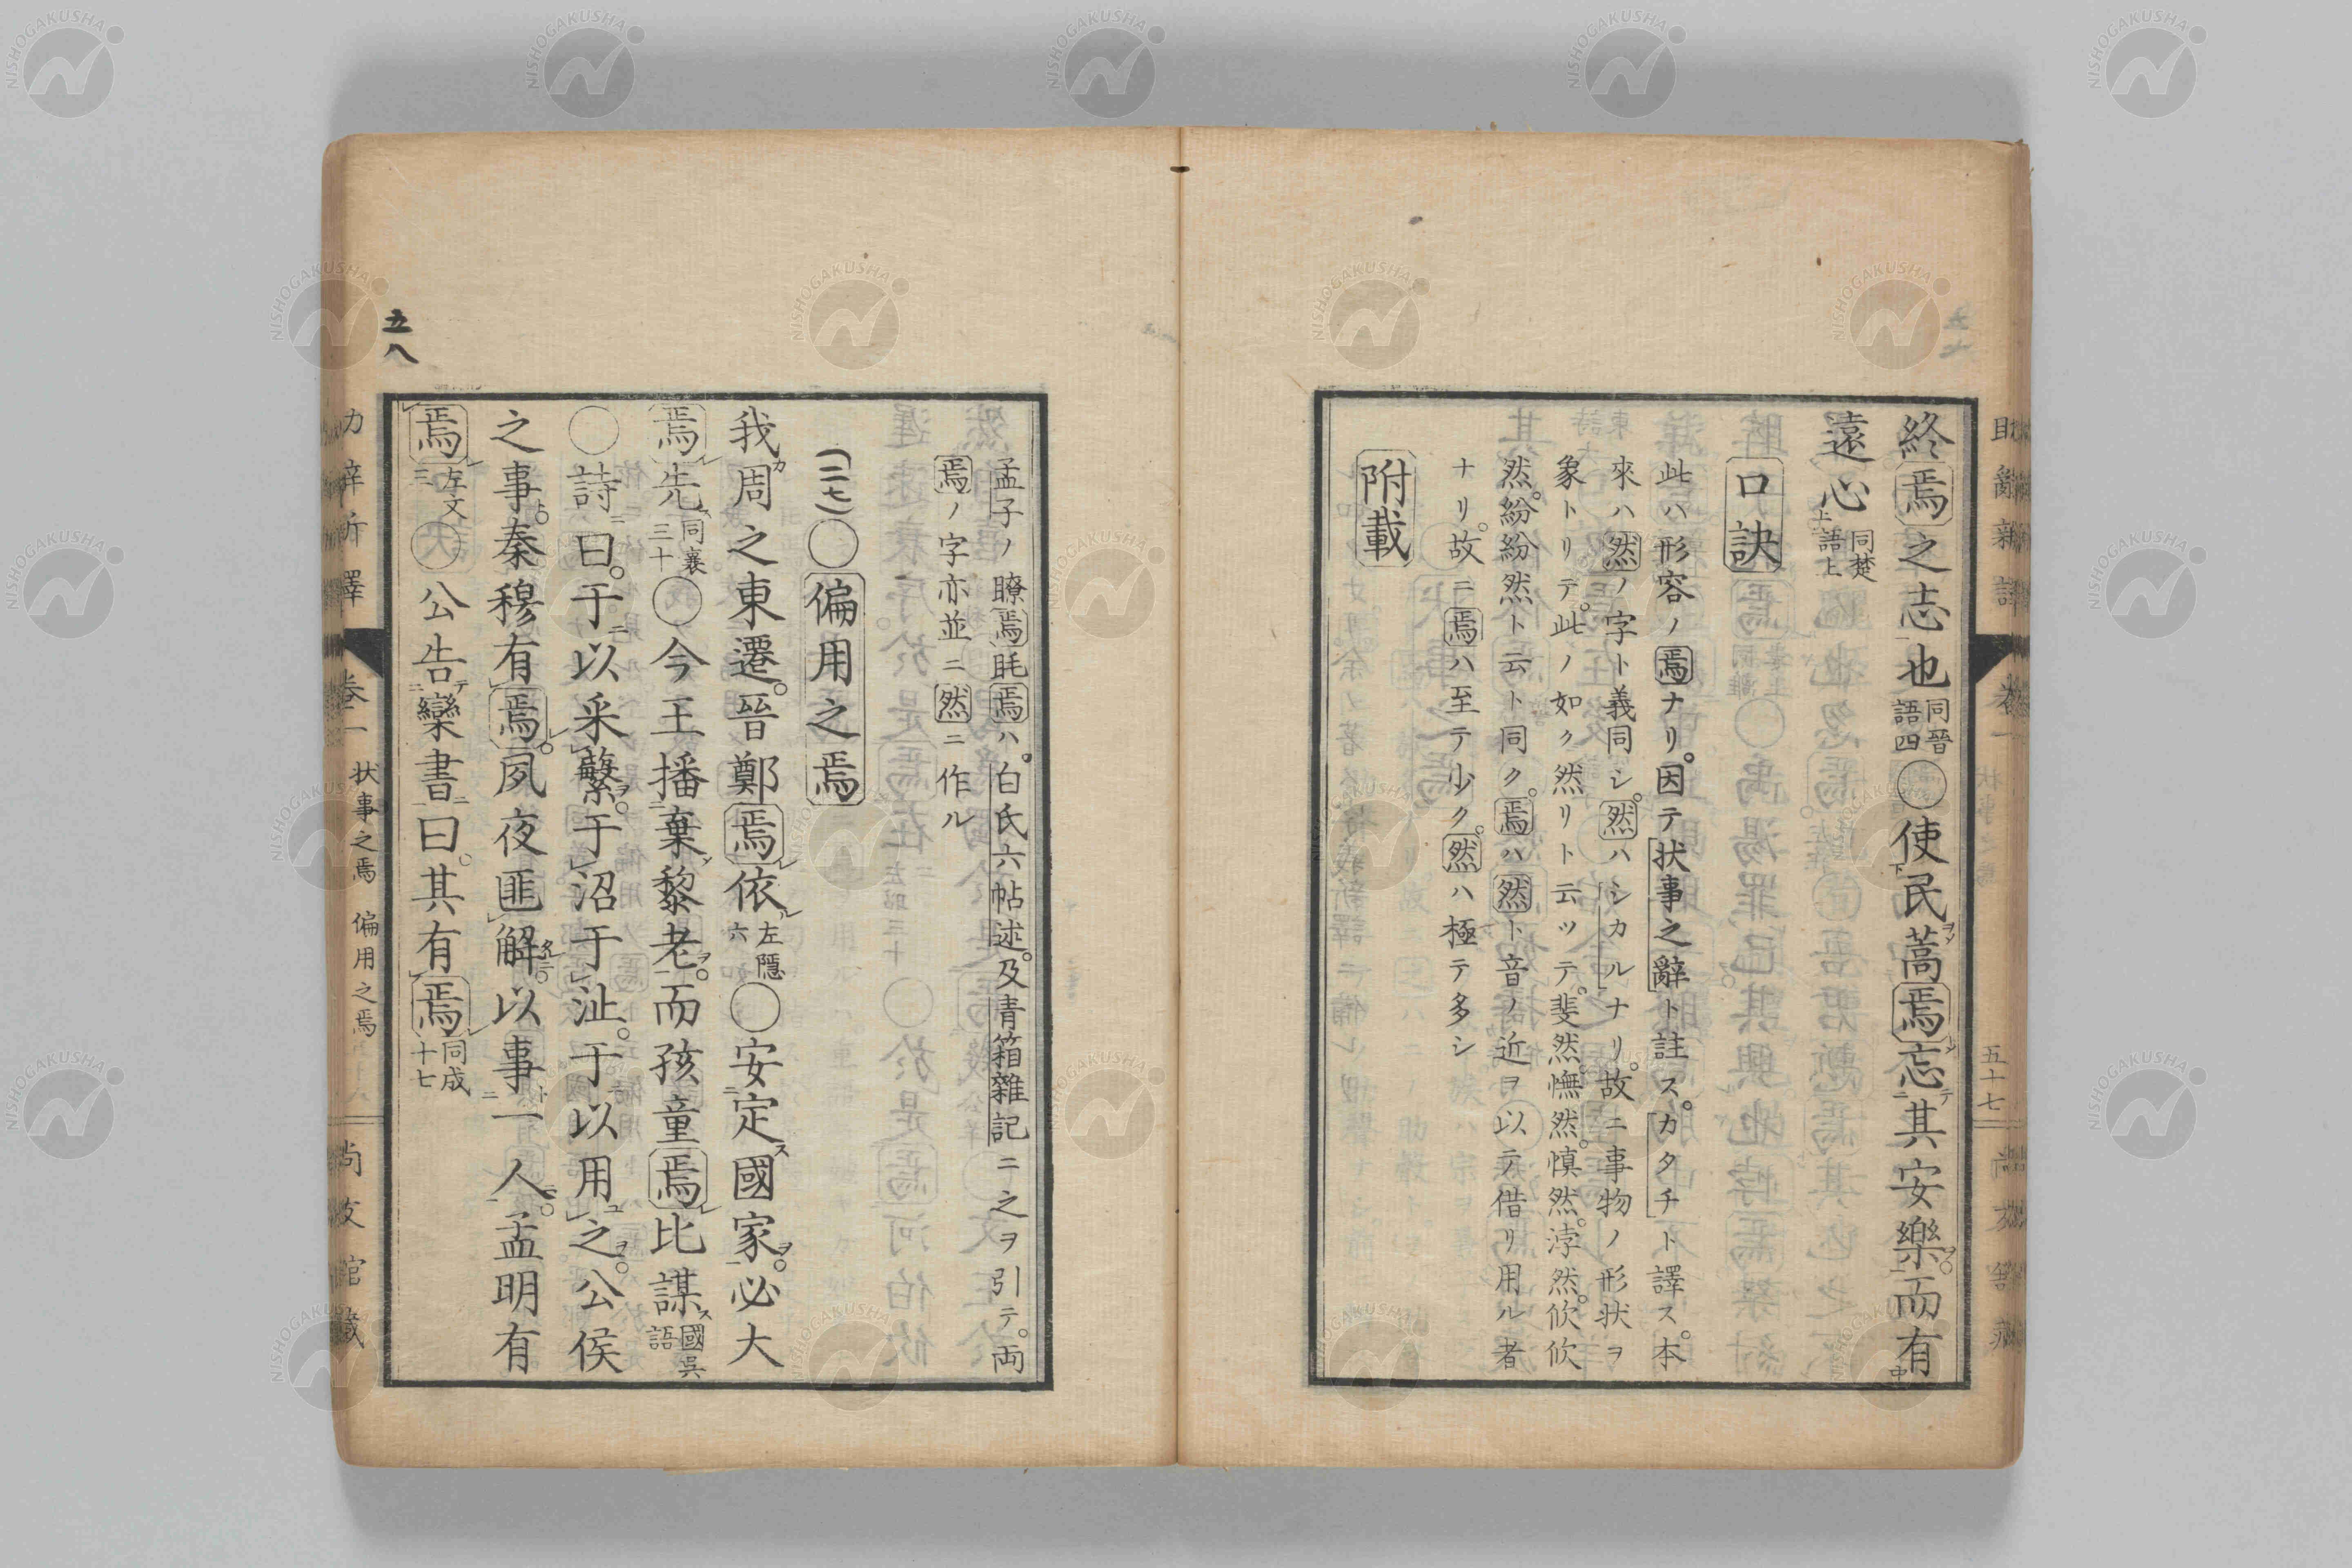 終焉之志也同晉語四○使民蒿焉忘其安樂而有
遠心同楚語上
口訣
此ハ形容ノ焉ナリ。因テ狀事之辭ト註ス。カタチト譯ス。本
來ハ然ノ字ト義同シ。然ハシカルナリ。故ニ事物ノ形狀ヲ
象トリテ。此ノ如ク然リト云ツテ。斐然。憮然。慎然。浡然。欣欣
然。紛紛然ト云ト同ク。焉ハ然ト音ノ近ヲ以テ借リ用ル者
ナリ。故ニ焉ハ至テ少ク。然ハ極テ多シ
附載
五十七
孟子ノ瞭焉眊焉ハ。白氏六帖述。及青箱雜記ニ之ヲ引テ。両
焉ノ字亦並ニ然ニ作ル
(二七)○偏用之焉
我周之東遷。晉鄭焉依左隱六○安定國家。必大
焉先同襄三十○今王播棄黎老。而孩童焉比謀國語吳
○詩曰。于以采蘩。于沼于沚。于以用之。公侯
之事。秦穆有焉。夙夜匪解。以事一人。孟明有
焉左文三○公告欒書曰。其有焉同成十七
五八
卷一 狀事之焉 偏用之焉
NISHOGAKUSHA